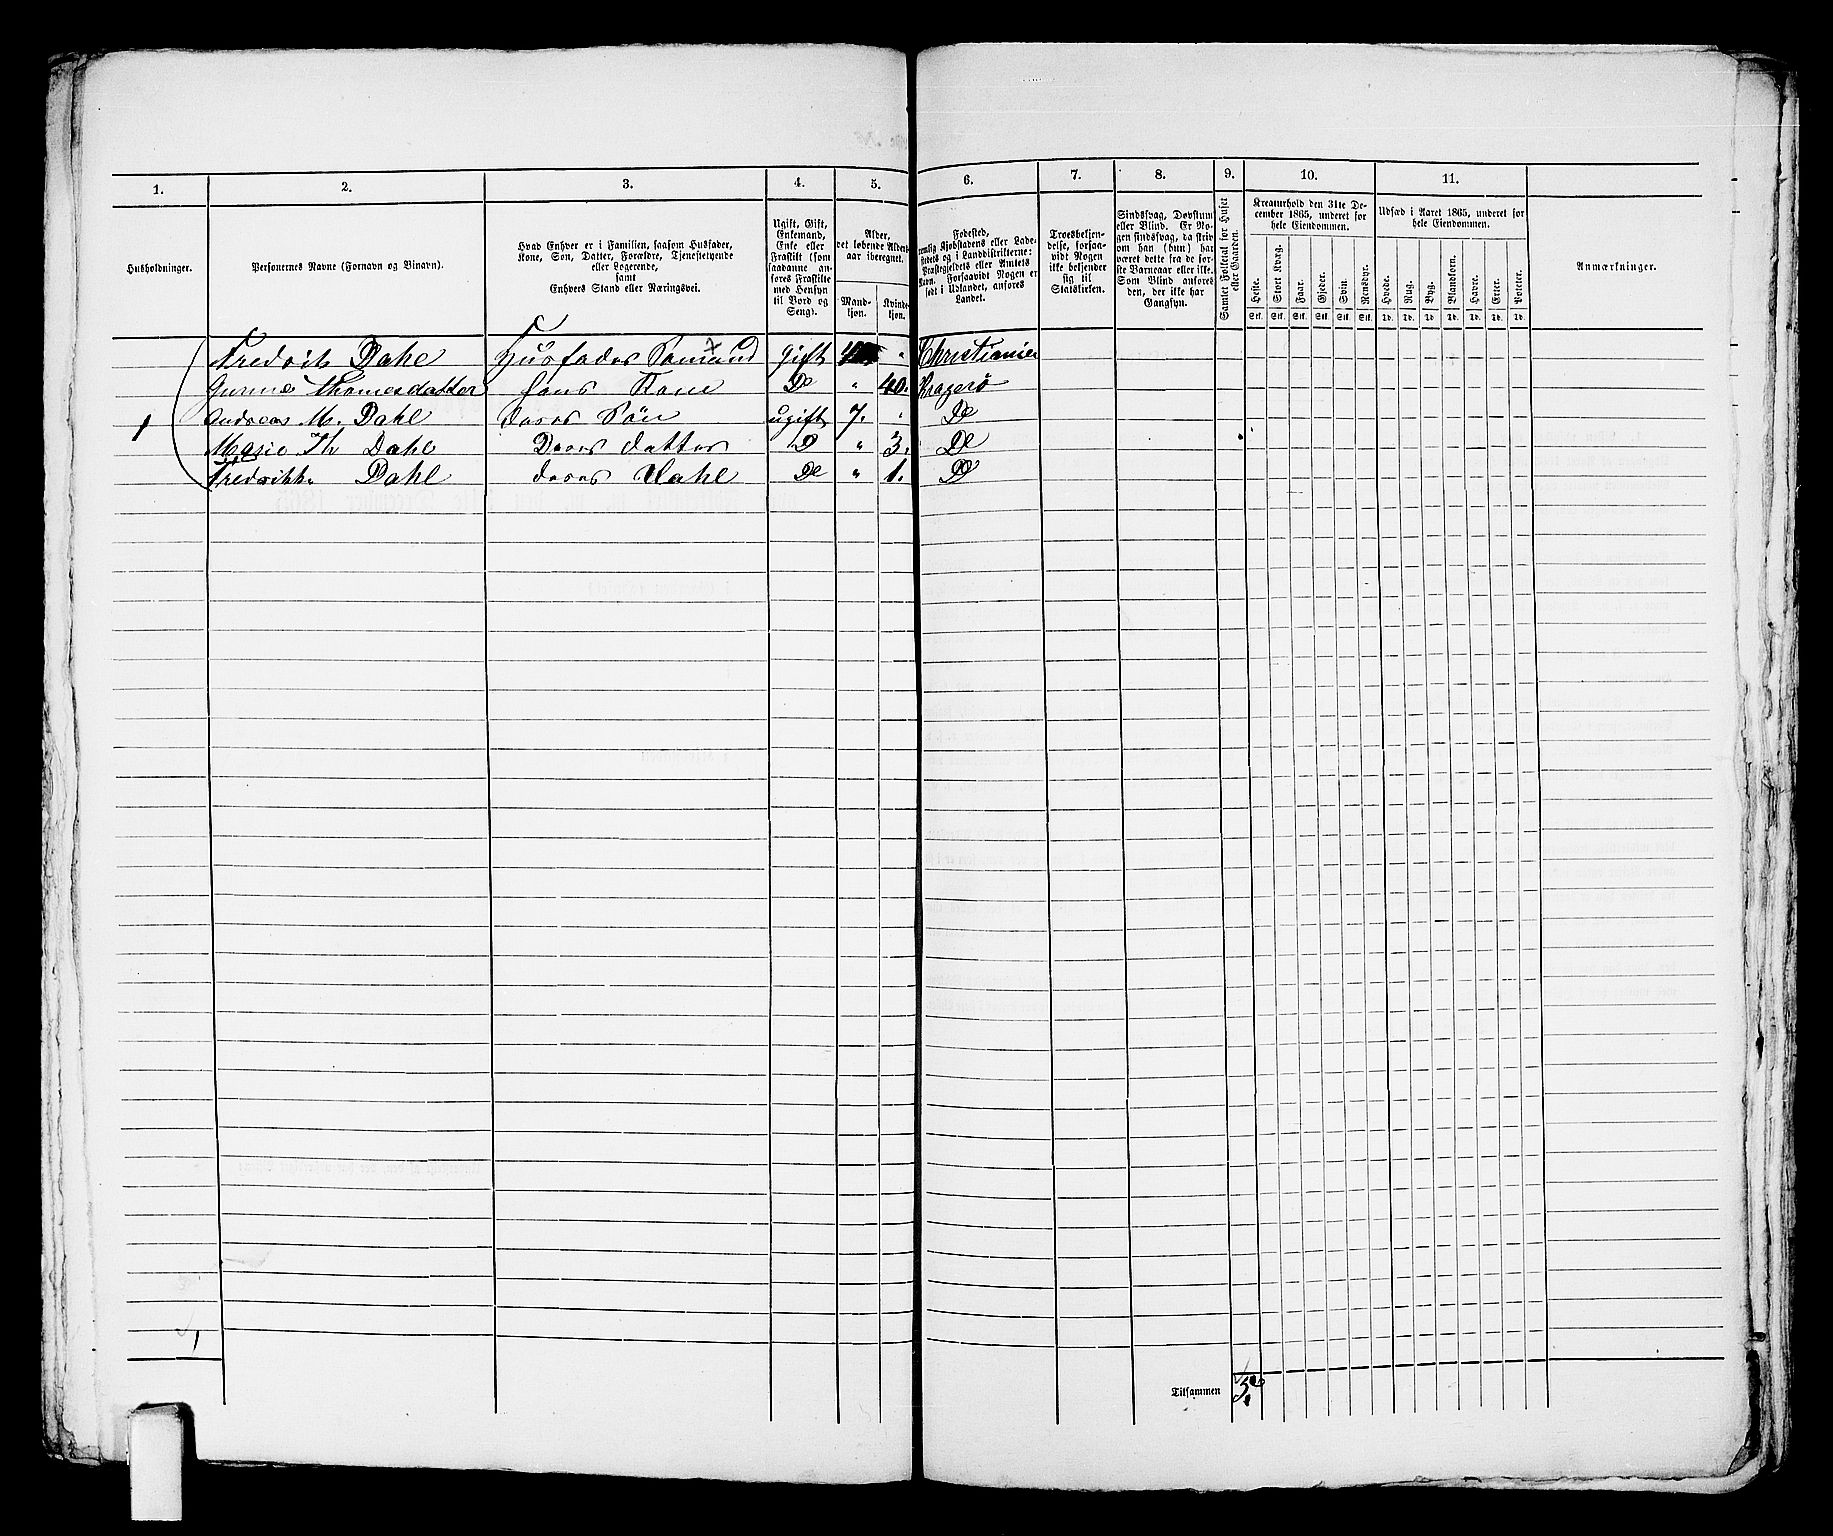 1. 2. 3. 4. 5. 6. 7. 8. 9. 10. 11.
Husholdninger.
Personernes Navne (Fornavn og Binavn).
Hvad Enhver er i Familien, saasom Husfader,
Kone, Søn, Datter, Forældre, Tjenestetyende
eller Logerende,
samt
Enhvers Stand eller Næringsvei.
Ugift, Gift,
Enkemand,
Enke eller
Fraskilt (som
saadanne an-
føres Fraskilte
med Hensyn
til Bord og
Seng).
Alder,
det løbende Alders-
aar iberegnet.
Mand-
kjøn.
Kvinde-
kjøn.
Fødested,
nemlig Kjøbstadens eller Lade-
stedets og i Landdistrikterne:
Præstegjeldets eller Amtets
Navn. Forsaavidt Nogen er
født i Udlandet, anføres
Landet.
Troesbekjen-
delse, forsaa-
vidt Nogen
ikke bekjender
sig til
Statskirken.
Sindssvag, Døvstum
eller Blind. Er No-
gen sindssvag, da skriv
om han (hun) har
været dette fra de før-
ste Barneaar eller ikke.
Som Blind anføres
den, der ikke har
Gangsyn.
Samlet Folketal for Huset
eller Gaarden.
Kreaturhold den 31te De-
cember 1865, underet for
hele Eiendommen.
Heste. Stort Kvæg. Faar. Gjeder. Svin. Rensdyr.
Stk. Stk. Stk. Stk. Stk. Stk.
Udsæd i Aaret 1865, underet for
hele Eiendommen.
Hvede. Rug. Byg. Blandkorn. Havre. Erter. Poteter.
Td. Td. Td. Td. Td. Td. Td.
Anmærkninger.
Fredrik Dahl Husfader Sømand gift " Christiania
Gunne Thomesdatter hans Kone Do " 40. Kragerø
1 Andreas M. Dahl deres Søn ugift 7. " Do
Marie Th Dahl Deres datter D " 3. Do
Fredrikk. Dahl deres Dahl Do " 1. D
1
Tilsammen 5.